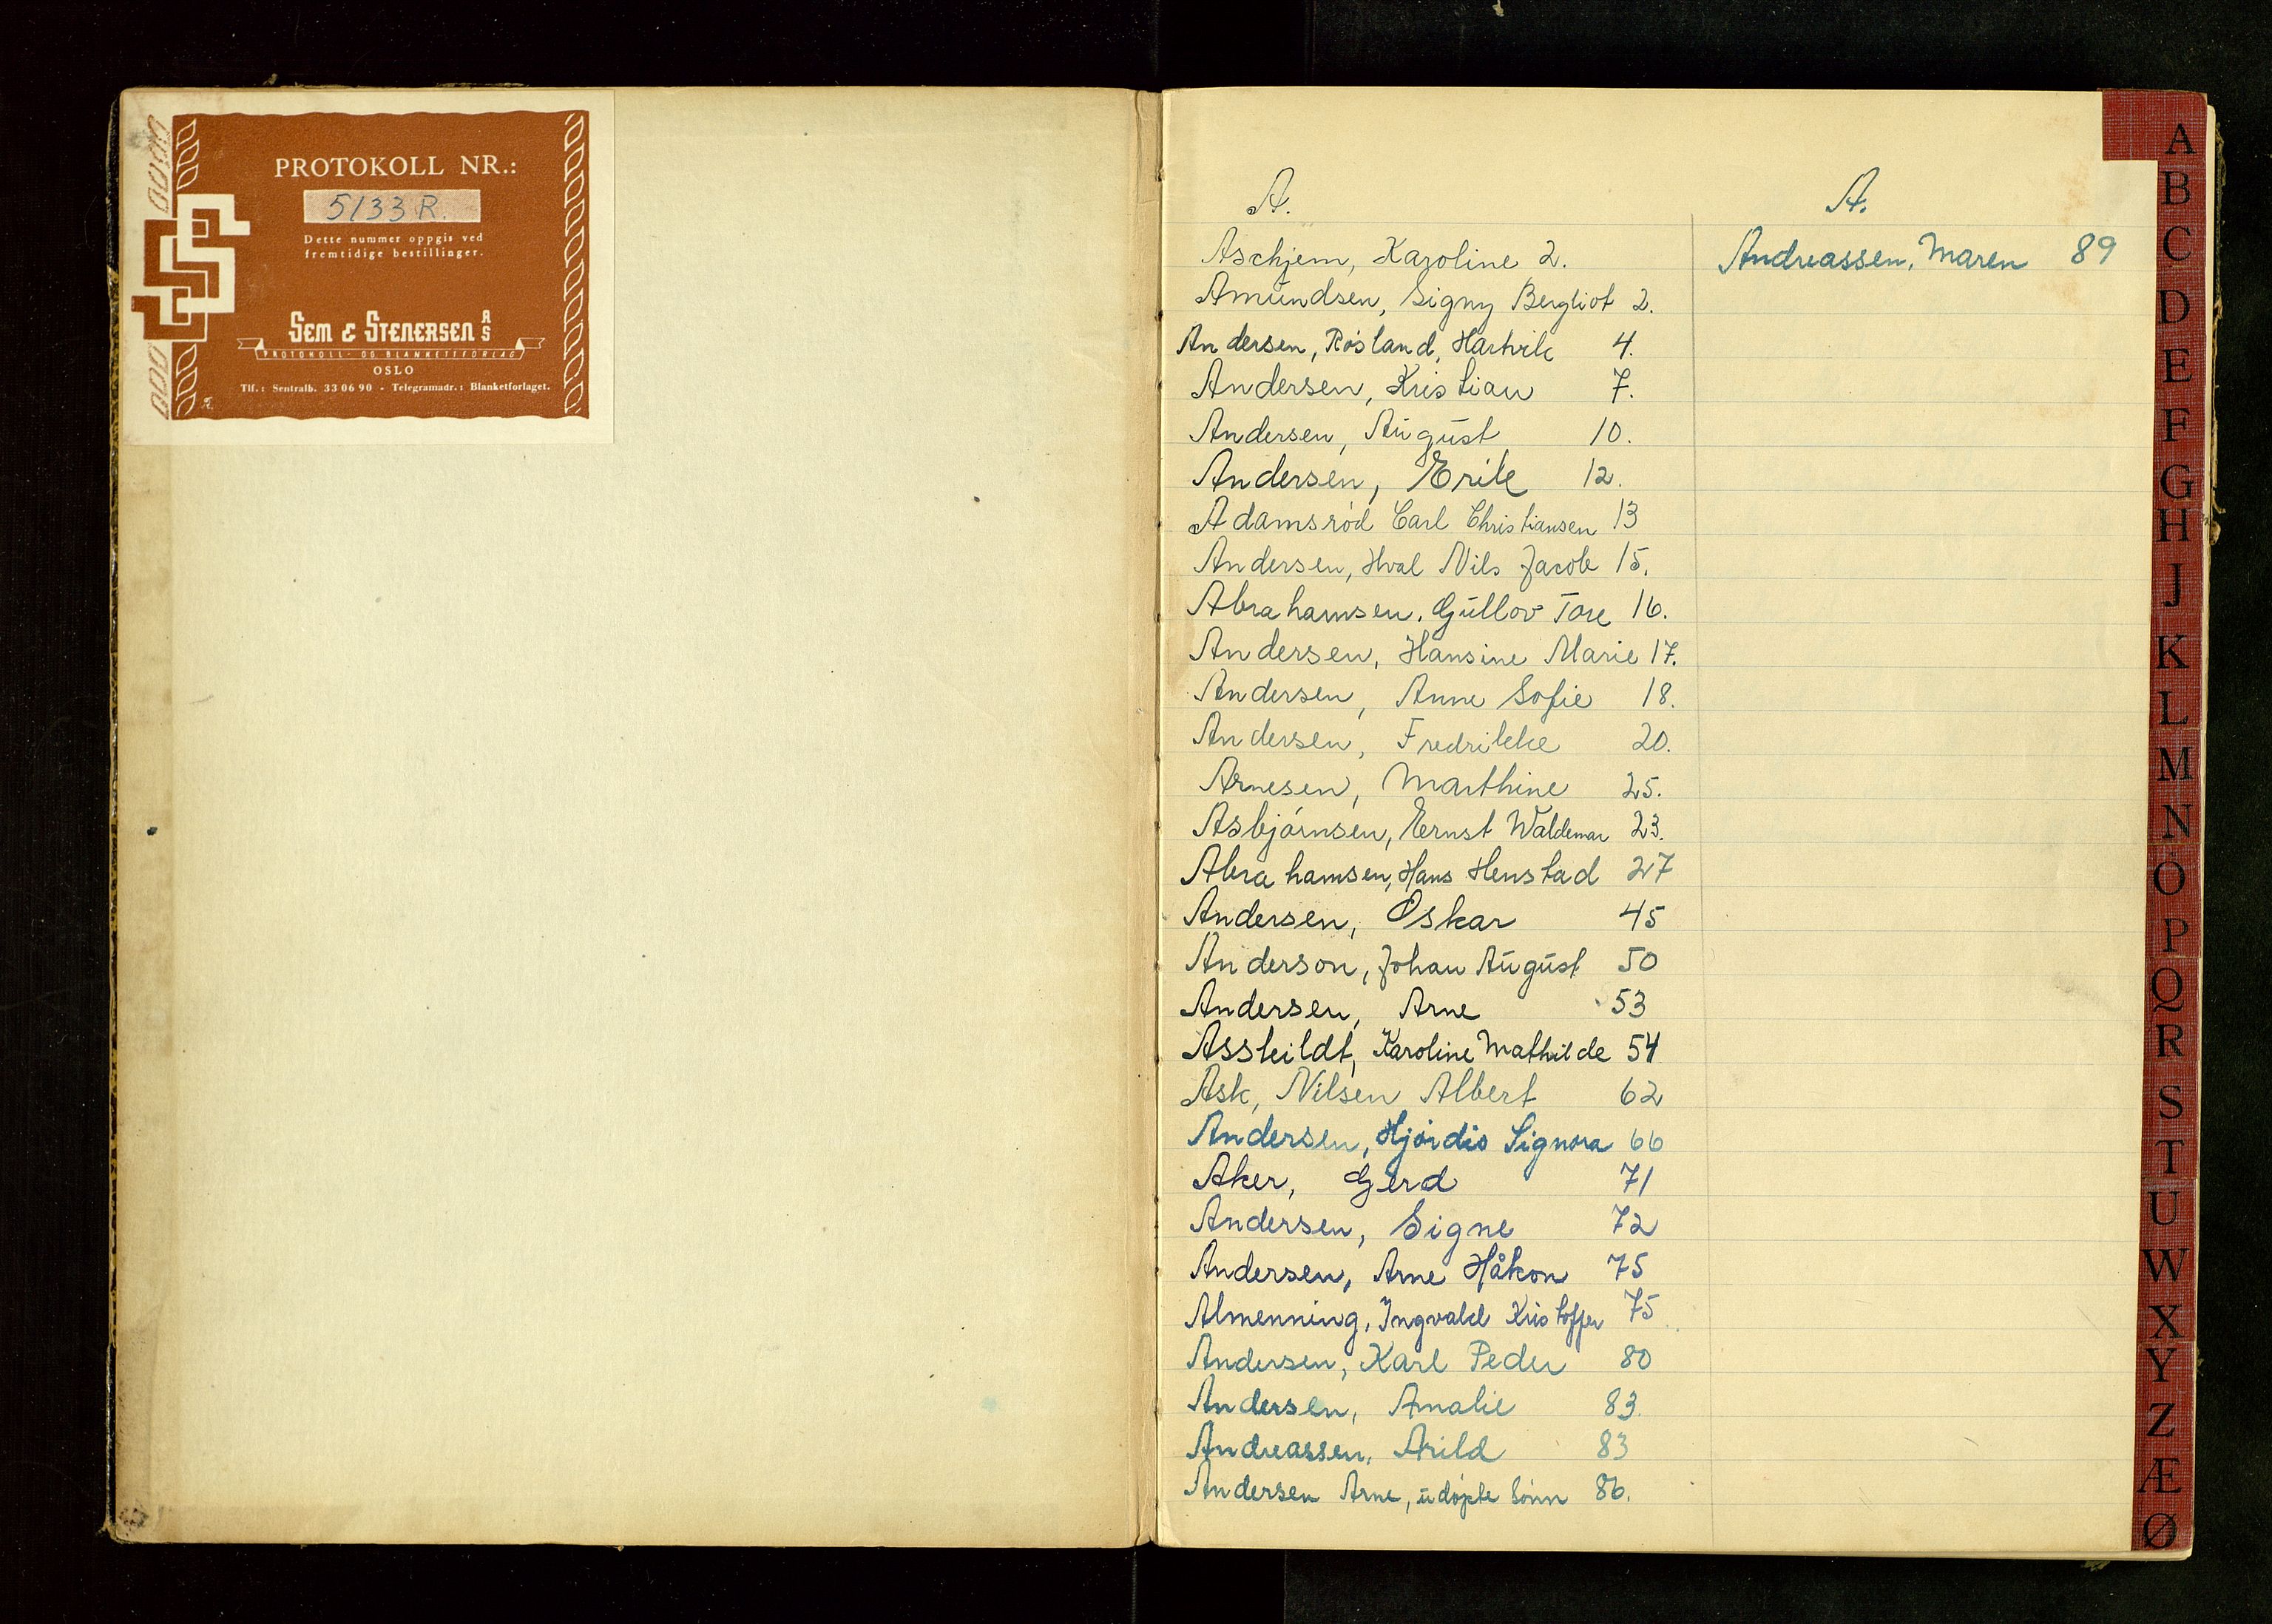 PROTOKOLL NR.:
5133 R.
Dette nummer oppgis ved
fremtidige bestillinger.
SEM & STENERSEN A/S
PROTOKOLL- OG BLANKETTFORLAG
OSLO
Tlf.: Sentralb. 33 06 90 - Telegramadr.: Blanketforlaget.
A.
Aschjem, Karoline 2.
Amundsen, Signy Bergliot 2.
Andersen, Røsland, Hartvik 4.
Andersen, Kristian 7.
Andersen, August 10.
Andersen, Erik 12.
Adamsrød Carl Christiansen 13
Andersen, Hval Nils Jacob 15.
Abrahamsen, Gullov Tore 16.
Andersen, Hansine Marie 17.
Andersen, Anne Sofie 18.
Andersen, Fredrikke 20.
Arnesen, Marthine 25.
Asbjørnsen, Ernst Waldemar 23.
Abrahamsen, Hans Henstad 27
Andersen, Oskar 45
Anderson, Johan August 50
Andersen, Arne 53
Asskildt, Karoline Mathilde 54
Ask, Nilsen Albert 62
Andersen, Hjørdis Signora 66
Aker, Gerd 71
Andersen, Signe 72
Andersen, Arne Håkon 75
Almenning, Ingvald Kristoffer 75
Andersen, Karl Peder 80
Andersen, Amalie 83.
Andreassen, Arild 83
Andersen Arne, udøpte sønn 86.
A.
Andreassen, Maren 89
A
B
C
D
E
F
G
H
J
K
L
M
N
O
P
Q
R
S
T
U
W
X
Y
Z
Æ
Ø